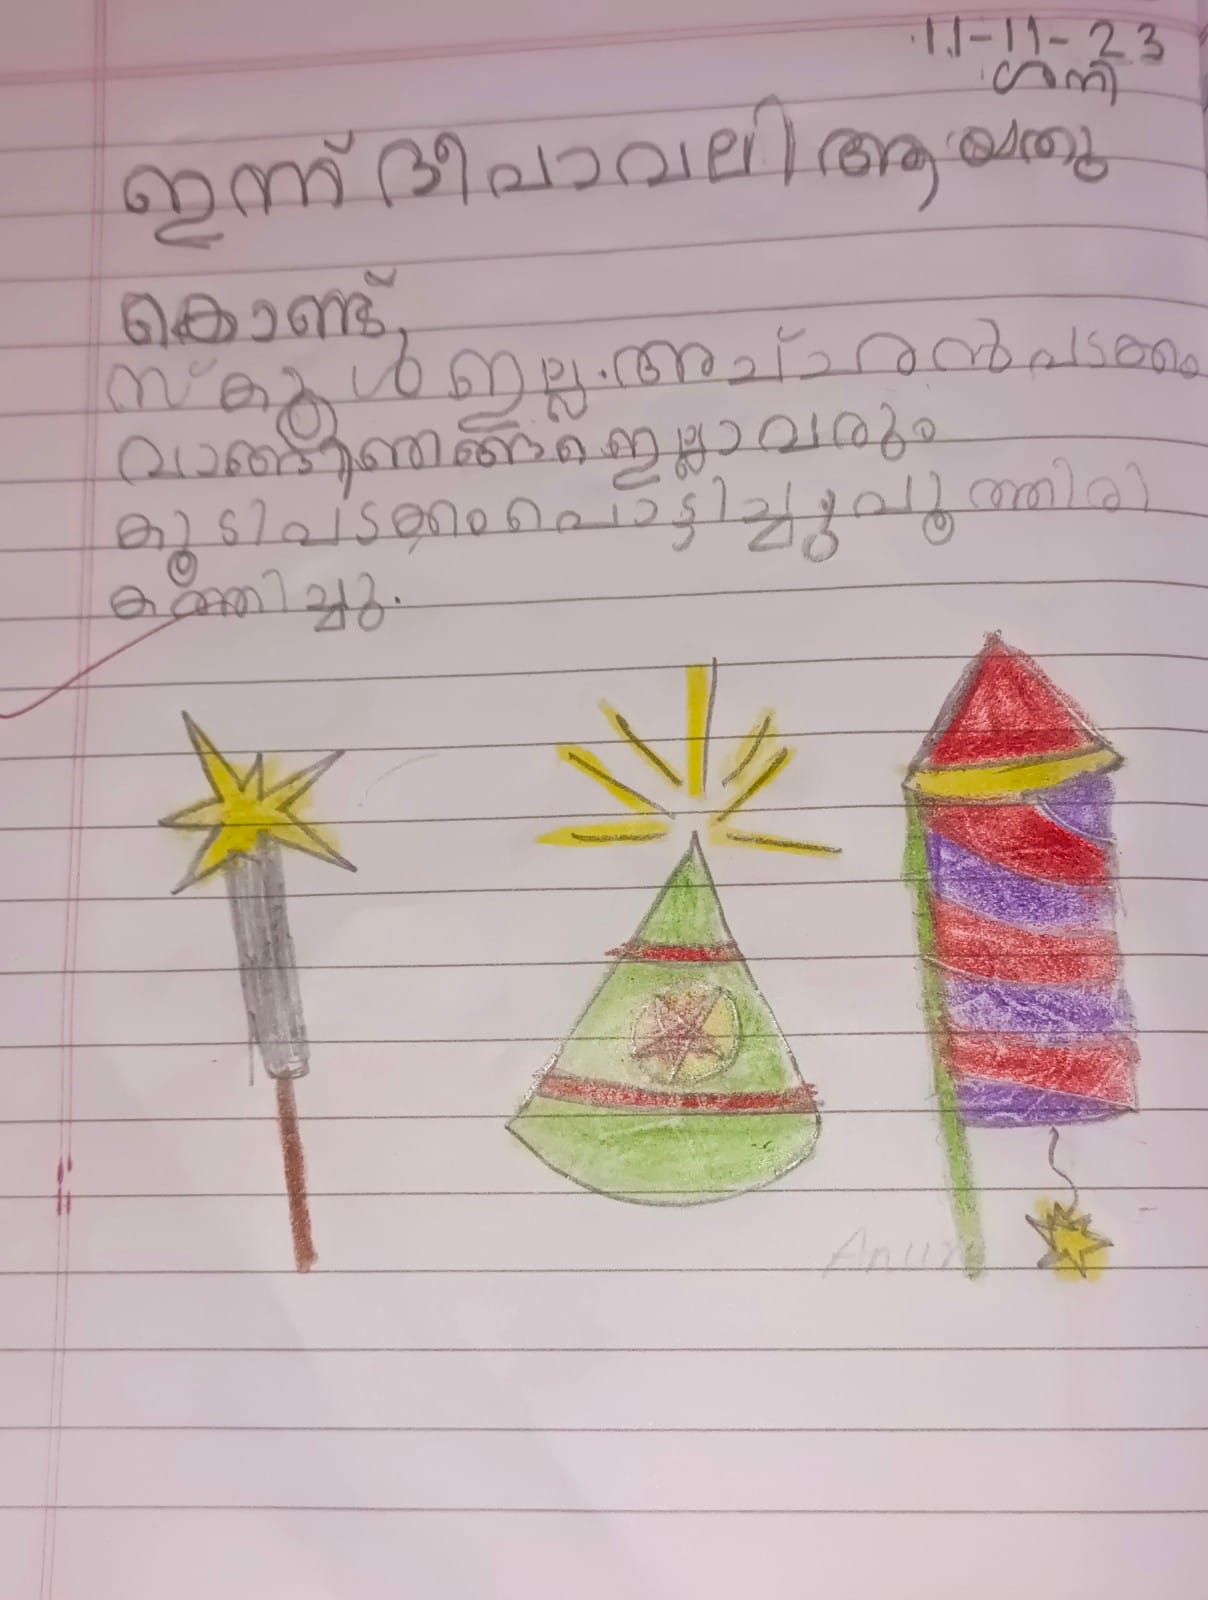 11-11-23
ശനി
ഇന്ന് ദീപാവലി ആയതു
കൊണ്ട്,
സ്കൂൾ ഇല്ല. അച്ഛൻ പടക്കം
വാങ്ങി ഞങ്ങൾ എല്ലാവരും
കൂടി പടക്കം പൊട്ടിച്ചു പൂത്തിരി
കത്തിച്ചു.